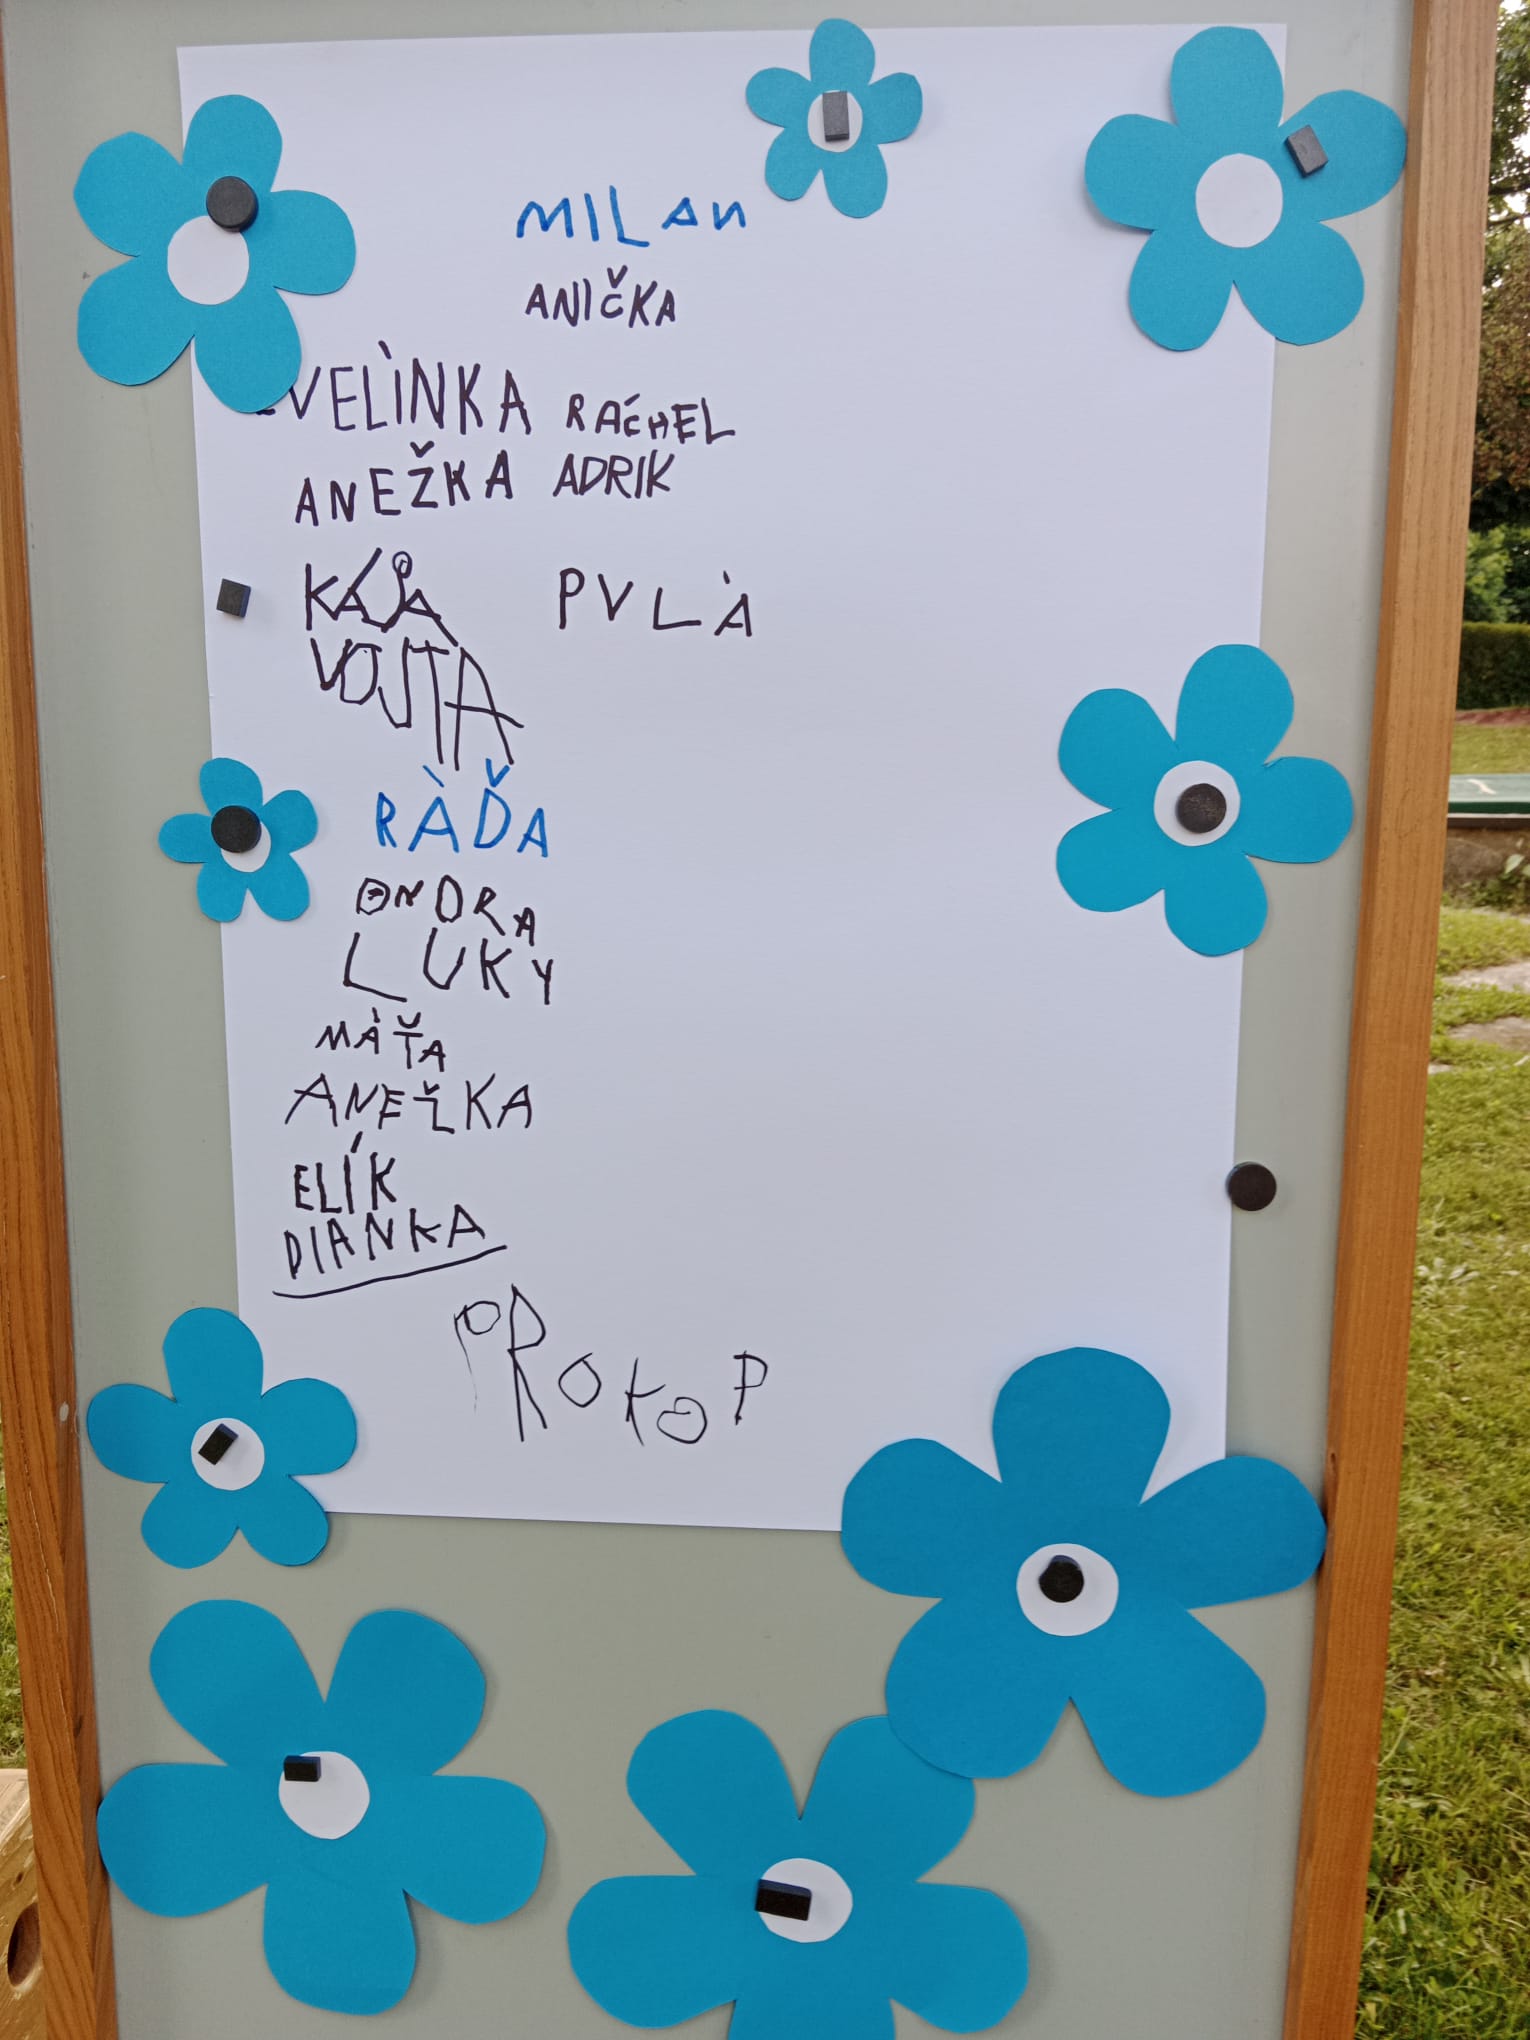 MILAN
ANIČKA
EVELÌNKA RÁCHEL
ANEŽKA ADRIK
KÁJA PVLÀ
VOJTA
RÀĎA
ONDRA
LUKY
MÀŤA
ANEŽKA
ELÍK
DIANKA
PROKOP